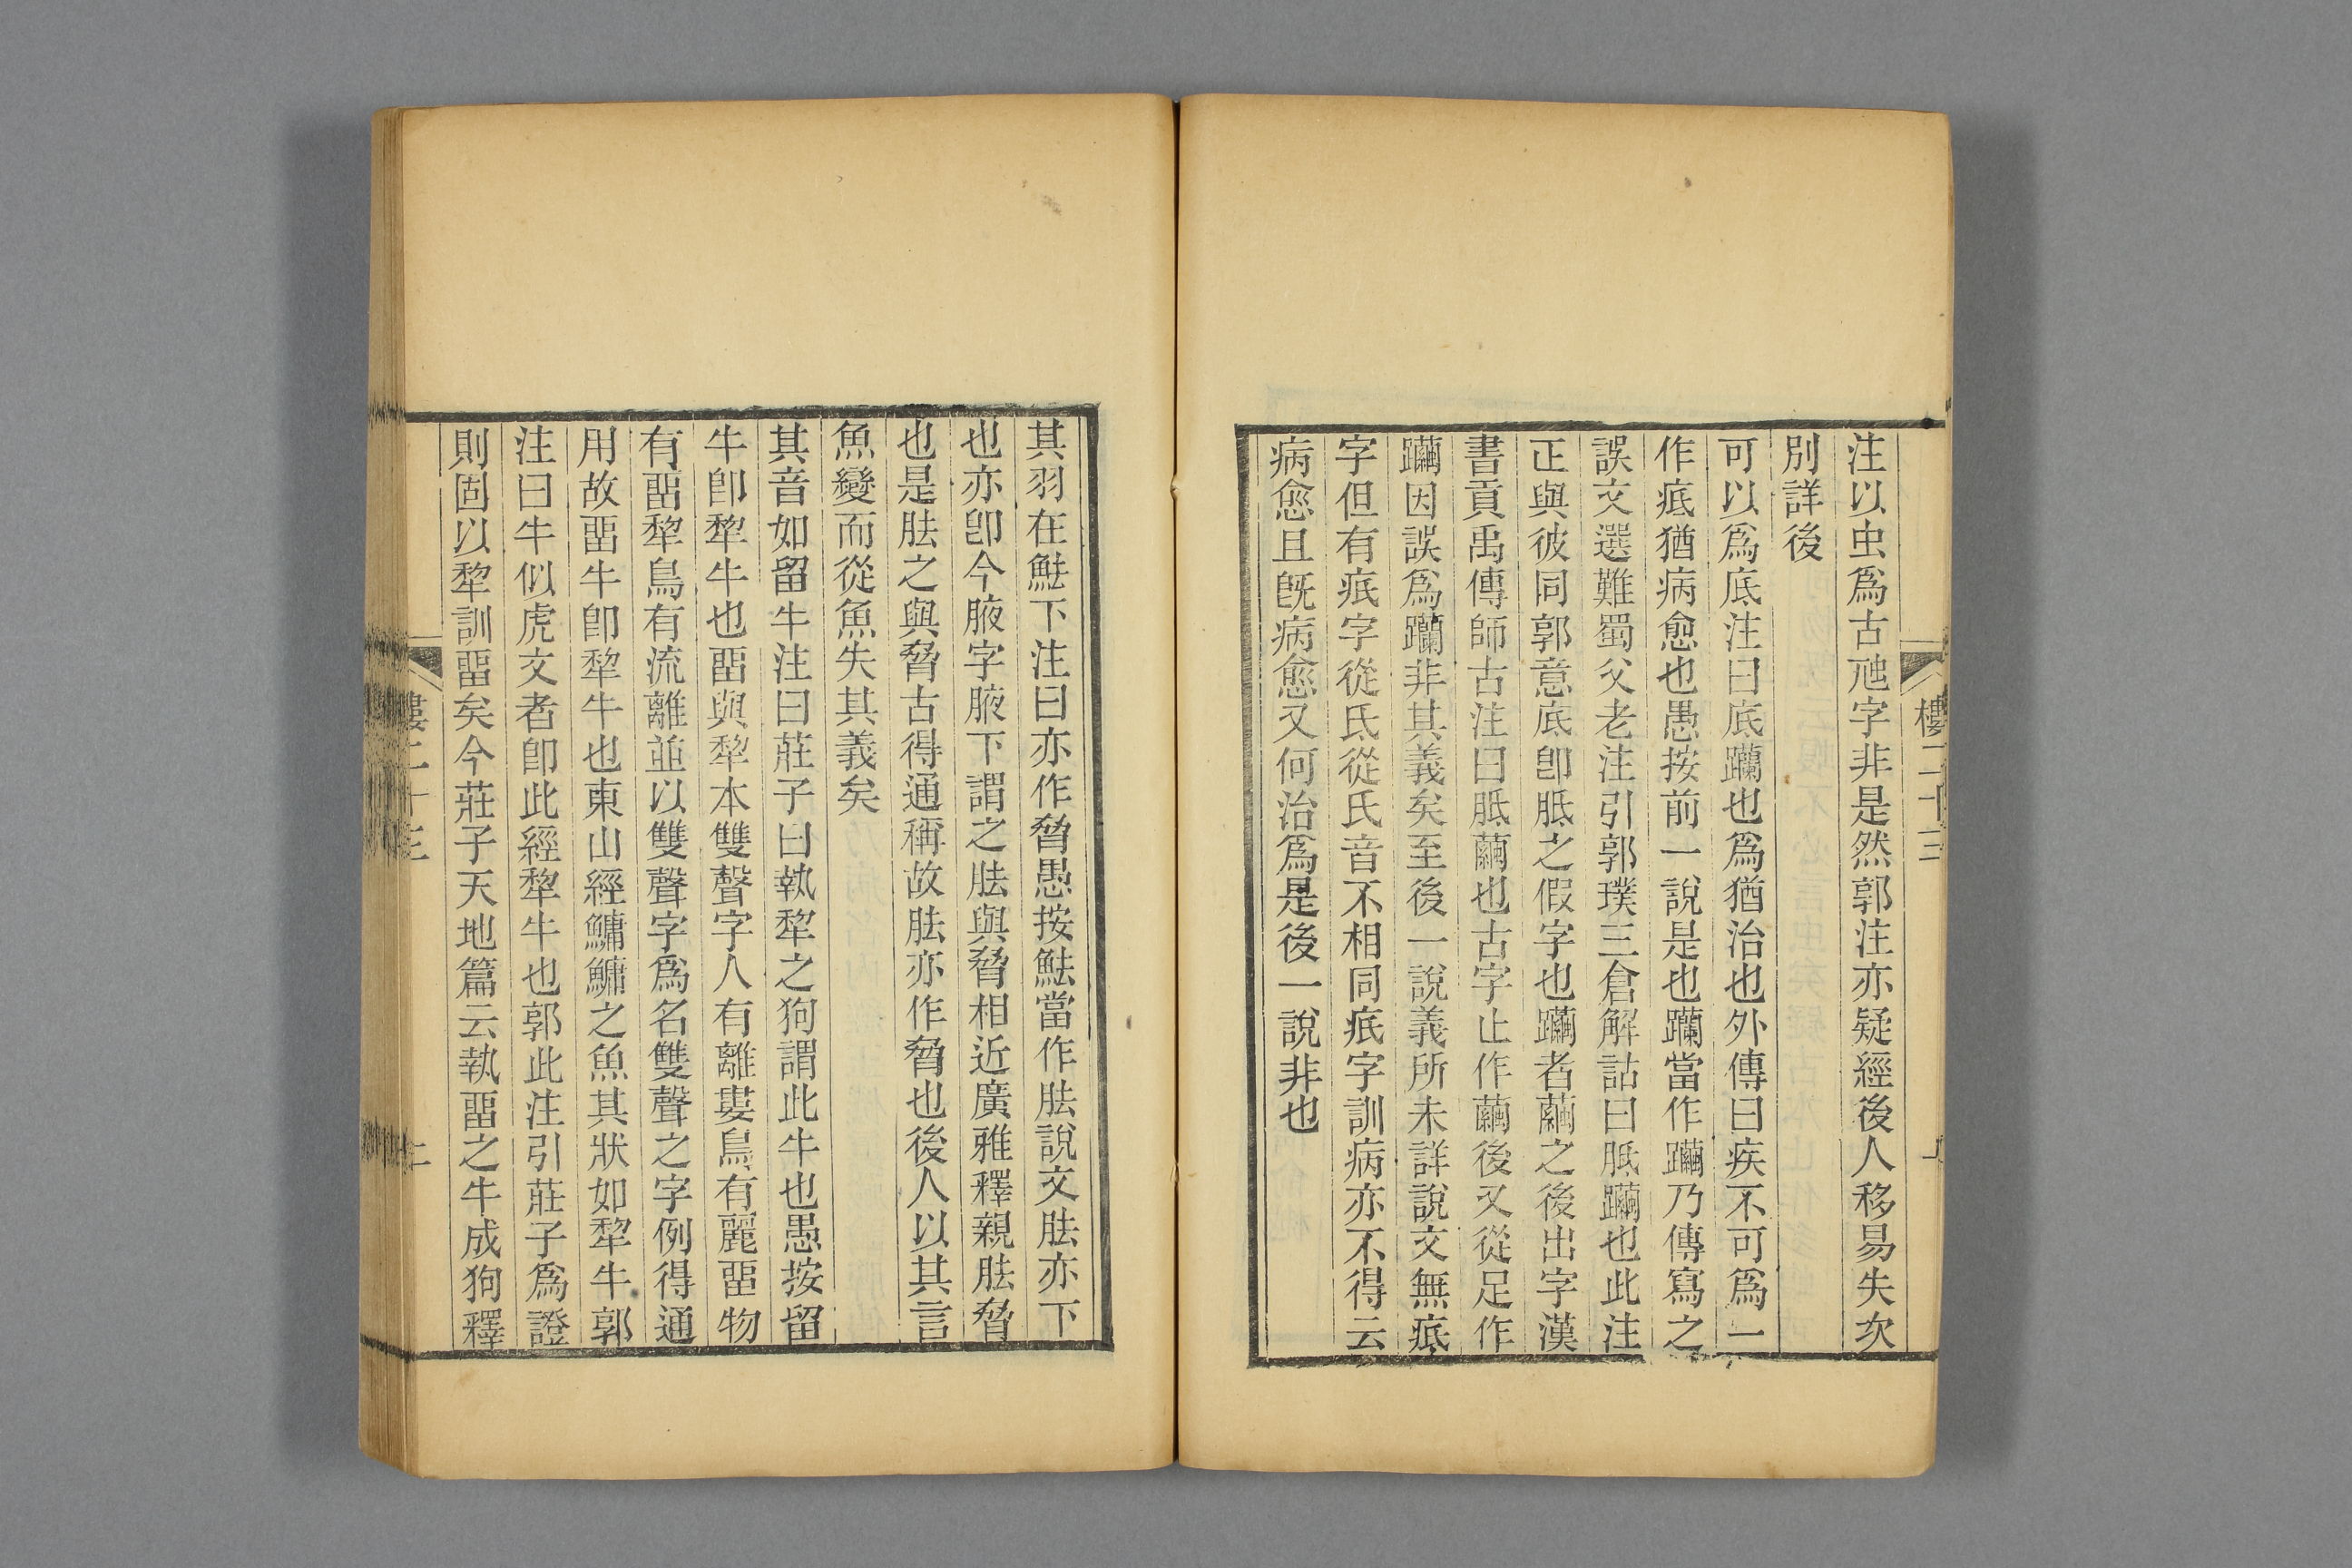 注以虫爲古虺字非是然郭注亦疑經後人移易失次
別詳後
可以爲底注曰底躪也爲猶治也外傳曰疾不可爲一
作疷猶病愈也愚按前一說是也躪當作䠾乃傳寫之
誤文選難蜀父老注引郭璞三倉解詁曰胝䠾也此注
正與彼同郭意底卽胝之假字也䠾者繭之後出字漢
書貢禹傳師古注曰胝繭也古字止作繭後又從足作
䠾因誤爲躪非其義矣至後一說義所未詳說文無疷
字但有疧字從氐從氏音不相同疧字訓病亦不得云
病愈且旣病愈又何治爲是後一說非也
樓二十三
其羽在魼下注曰亦作脅愚按魼當作胠說文胠亦下
也亦卽今腋字腋下謂之胠與脅相近廣雅釋親胠脅
也是胠之與脅古得通稱故胠亦作脅也後人以其言
魚變而從魚失其義矣
其音如留牛注曰莊子曰執犂之狗謂此牛也愚按留
牛卽犂牛也畱與犂本雙聲字人有離婁鳥有麗畱物
有畱犂鳥有流離並以雙聲字爲名雙聲之字例得通
用故畱牛卽犂牛也東山經鱅鱅之魚其狀如犂牛郭
注曰牛似虎文者卽此經犂牛也郭此注引莊子爲證
則固以犂訓畱矣今莊子天地篇云執畱之牛成狗釋
樓二十三